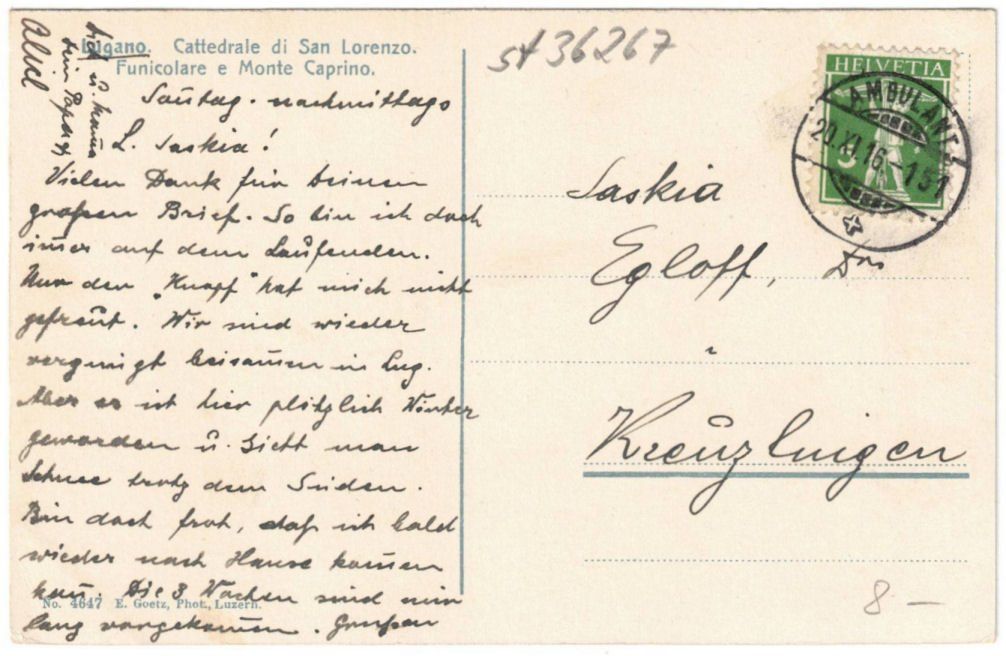 Lugano. Cattedrale di San Lorenzo.
Funicolare e Monte Caprino.
Sontag-nachmittags
L. Saskia!
Vielen Dank für deinen
großen Brief. So bin ich doch
im̄er auf dem Laufenden.
Nur der "Knopf" hat mich nicht
gefreut. Wir sind wieder
vergnügt beisam̄en in Lug.
Aber es ist hier plötzlich Winter
geworden u. sieht man
Schnee trotz dem Süden.
Bin doch froh, daß ich bald
wieder nach Hause kom̄en
kan̄. Die 3 Wochen sind mir
lang vorgekom̄en. Grüße
dich u. Mama
dein Papa
st 36267
HELVETIA
AMBULANT
20.XI.16. 151
Saskia
Egloff,
Kreuzlingen
No. 4647 E. Goetz, Phot., Luzern.
8 —